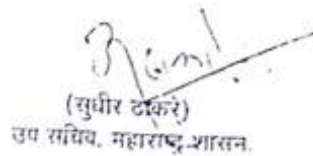 (सुधीर ठाकरे)
उप सचिव, महाराष्ट्र शासन.